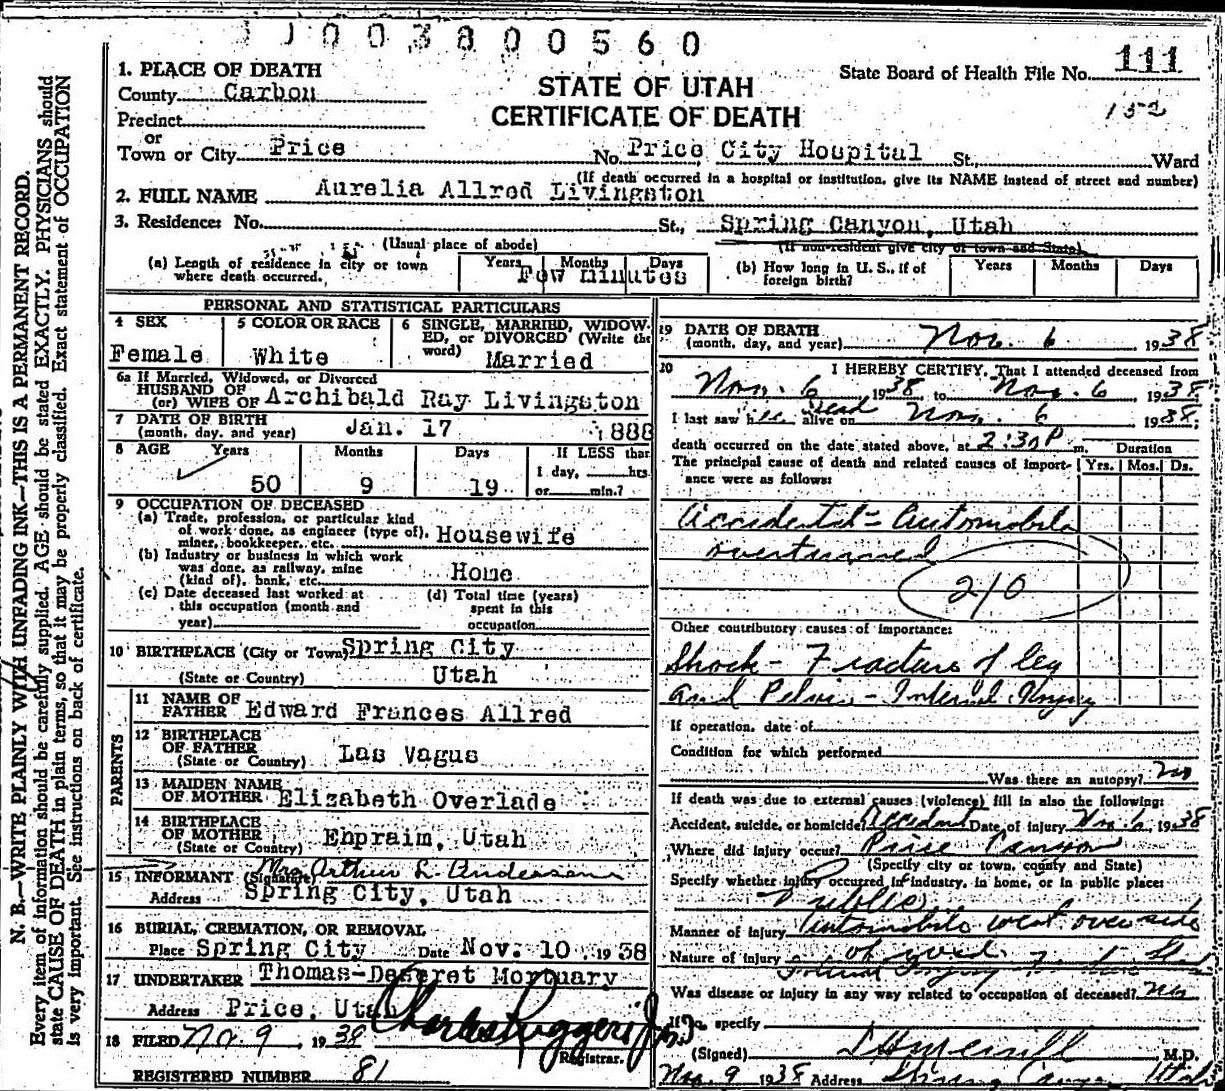 1003800560
111
State Board of Health File No.
152
STATE OF UTAH
CERTIFICATE OF DEATH
1. PLACE OF DEATH
County Carbon
Precinct
or
Town or City Price No. Price City Hospital St., Ward
(If death occurred in a hospital or institution, give its NAME instead of street and number)
2. FULL NAME Aurelia Allred Livingston
3. Residence: No. St., Spring Canyon, Utah
(Usual place of abode) (If non-resident give city or town and State)
(a) Length of residence in city or town where death occurred. Years Months Days Few minutes
(b) How long in U. S., if of foreign birth? Years Months Days
PERSONAL AND STATISTICAL PARTICULARS
4 SEX Female
5 COLOR OR RACE White
6 SINGLE, MARRIED, WIDOWED, or DIVORCED (Write the word) Married
6a If Married, Widowed, or Divorced
HUSBAND OF
(or) WIFE OF Archibald Ray Livingston
7 DATE OF BIRTH
(month, day, and year) Jan. 17 1888
8 AGE Years Months Days If LESS than
1 day, hrs.
or min.?
50 9 19
9 OCCUPATION OF DECEASED
(a) Trade, profession, or particular kind
of work done, as engineer (type of),
miner, bookkeeper, etc. Housewife
(b) Industry or business in which work
was done, as railway, mine
(kind of), bank, etc. Home
(c) Date deceased last worked at
this occupation (month and
year)
(d) Total time (years)
spent in this
occupation
10 BIRTHPLACE (City or Town) Spring City
(State or Country) Utah
PARENTS
11 NAME OF
FATHER Edward Frances Allred
12 BIRTHPLACE
OF FATHER
(State or Country) Las Vagus
13 MAIDEN NAME
OF MOTHER Elizabeth Overlade
14 BIRTHPLACE
OF MOTHER
(State or Country) Ehpraim, Utah
15 INFORMANT (Signature) Mrs Arthur L. Anderson
Address Spring City, Utah
16 BURIAL, CREMATION, OR REMOVAL
Place Spring City Date Nov. 10 1938
17 UNDERTAKER Thomas-Deseret Mortuary
Address Price, Utah
18 FILED Nov. 9, 1938
Charles Ruggeri Jr.
Registrar.
REGISTERED NUMBER 81
19 DATE OF DEATH
(month, day, and year) Nov. 6 1938
20 I HEREBY CERTIFY, That I attended deceased from
Nov. 6 1938 to Nov. 6 1938
I last saw her dead alive on Nov. 6 1938;
death occurred on the date stated above, at 2:30 P m.
Duration
The principal cause of death and related causes of importance were as follows: Yrs. Mos. Ds.
Accidental - Automobile
overturned
210
Other contributory causes of importance:
Shock - Fracture of leg
and Pelvis - Internal Injury
If operation, date of
Condition for which performed
Was there an autopsy? No
If death was due to external causes (violence) fill in also the following:
Accident, suicide, or homicide? Accident Date of injury Nov. 6, 1938
Where did injury occur? Price Canyon
(Specify city or town, county and State)
Specify whether injury occurred in industry, in home, or in public place:
Public
Manner of injury Automobile went over side
of road.
Nature of injury Internal Injury
Was disease or injury in any way related to occupation of deceased? No
If so, specify
(Signed) M.D.
Nov. 9 1938 Address Spring Canyon Utah
N. B.—WRITE PLAINLY WITH UNFADING INK—THIS IS A PERMANENT RECORD.
Every item of information should be carefully supplied. AGE should be stated EXACTLY. PHYSICIANS should
state CAUSE OF DEATH in plain terms, so that it may be properly classified. Exact statement of OCCUPATION
is very important. See instructions on back of certificate.